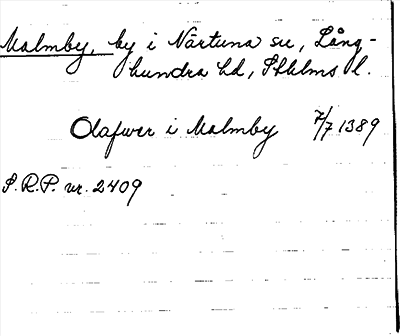 Malmby, by i Närtuna sn, Lång-
hundra hd, Sthlms l.
Olafwer i Malmby 7/7 1389
S.R.P. nr. 2409